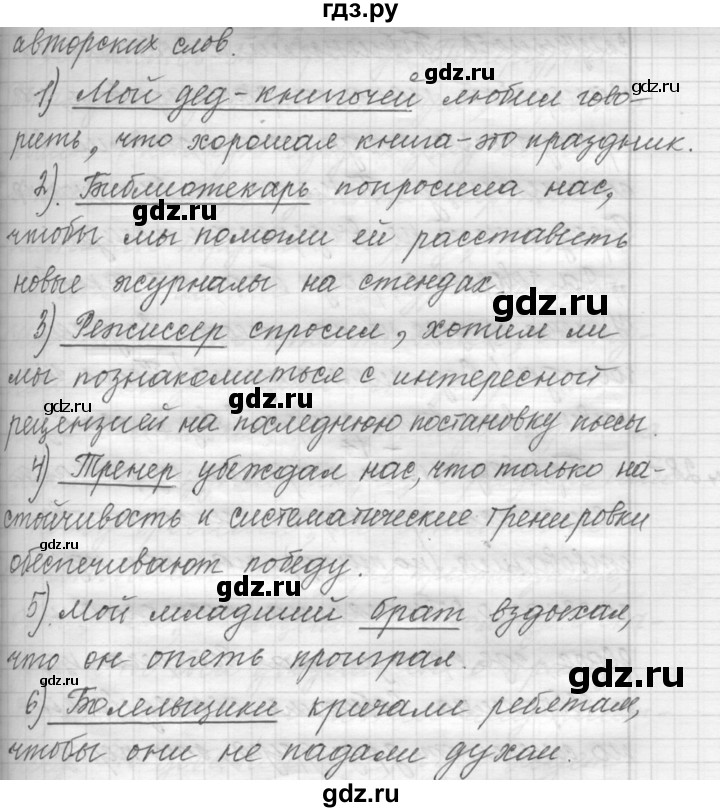 гдз.ру
авторских слов.
1) Мой дед-книгочей любил гово-
рить, что хорошая книга - это праздник.
2). Библиотекарь попросила нас,
чтобы мы помогли ей расставить
новые журналы на стендах
3) Режиссер спросил, хотим ли
мы познакомиться с интересной
рецензией на последнюю постановку пьесы.
4) Тренер убеждал нас, что только на-
стойчивость и систематические тренировки
обеспечивают победу.
5). Мой младший брат вздыхал,
что он опять проиграл.
6) Болельщики кричали ребятам,
чтобы они не падали духом.
gdz.ru
gdz.ru
gdz.ru
gdz.ru
gdz.ru
gdz.ru
gdz.ru
gdz.ru
gdz.ru
gdz.ru
gdz.ru